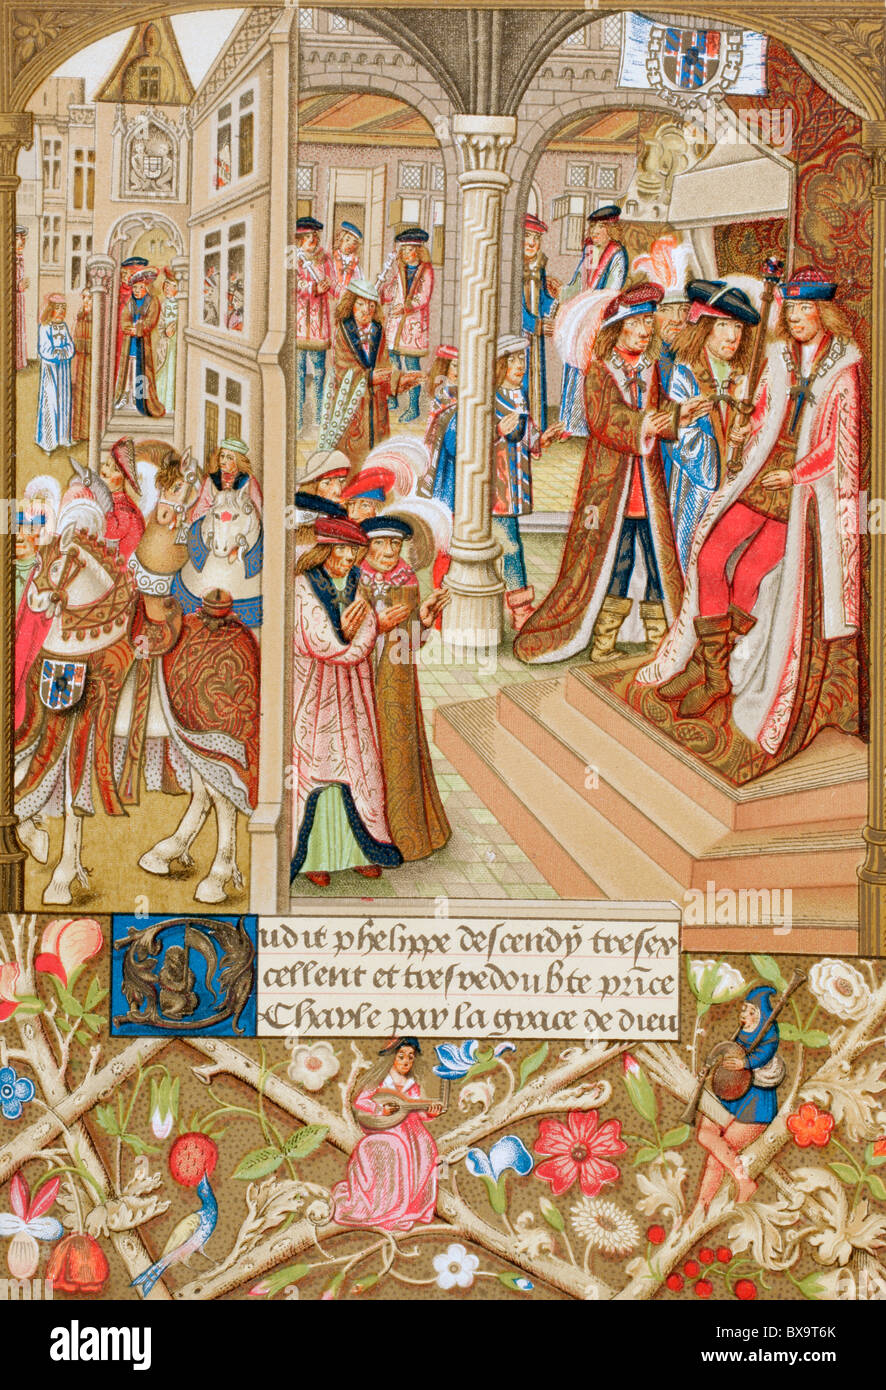 Dudit phelippe descendÿ tresex
cellent et tresredoubte prīce
Charle par la grace de dieu
alamy
Image ID: BX9T6K
www.alamy.com